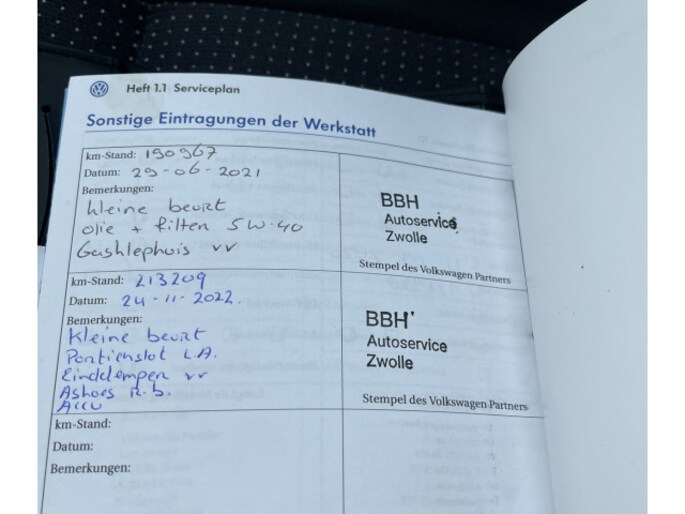 Heft 1.1 Serviceplan
Sonstige Eintragungen der Werkstatt
km-Stand: 190967
Datum: 29-06-2021
Bemerkungen:
kleine beurt
olie + filter 5W-40
Gashlephuis vv
BBH
Autoservice
Zwolle
Stempel des Volkswagen Partners
km-Stand: 213209
Datum: 24-11-2022.
Bemerkungen:
Kleine beurt
Portierslot L.A.
vv
Ashoes R.b.
Accu
BBH
Autoservice
Zwolle
Stempel des Volkswagen Partners
km-Stand:
Datum:
Bemerkungen: